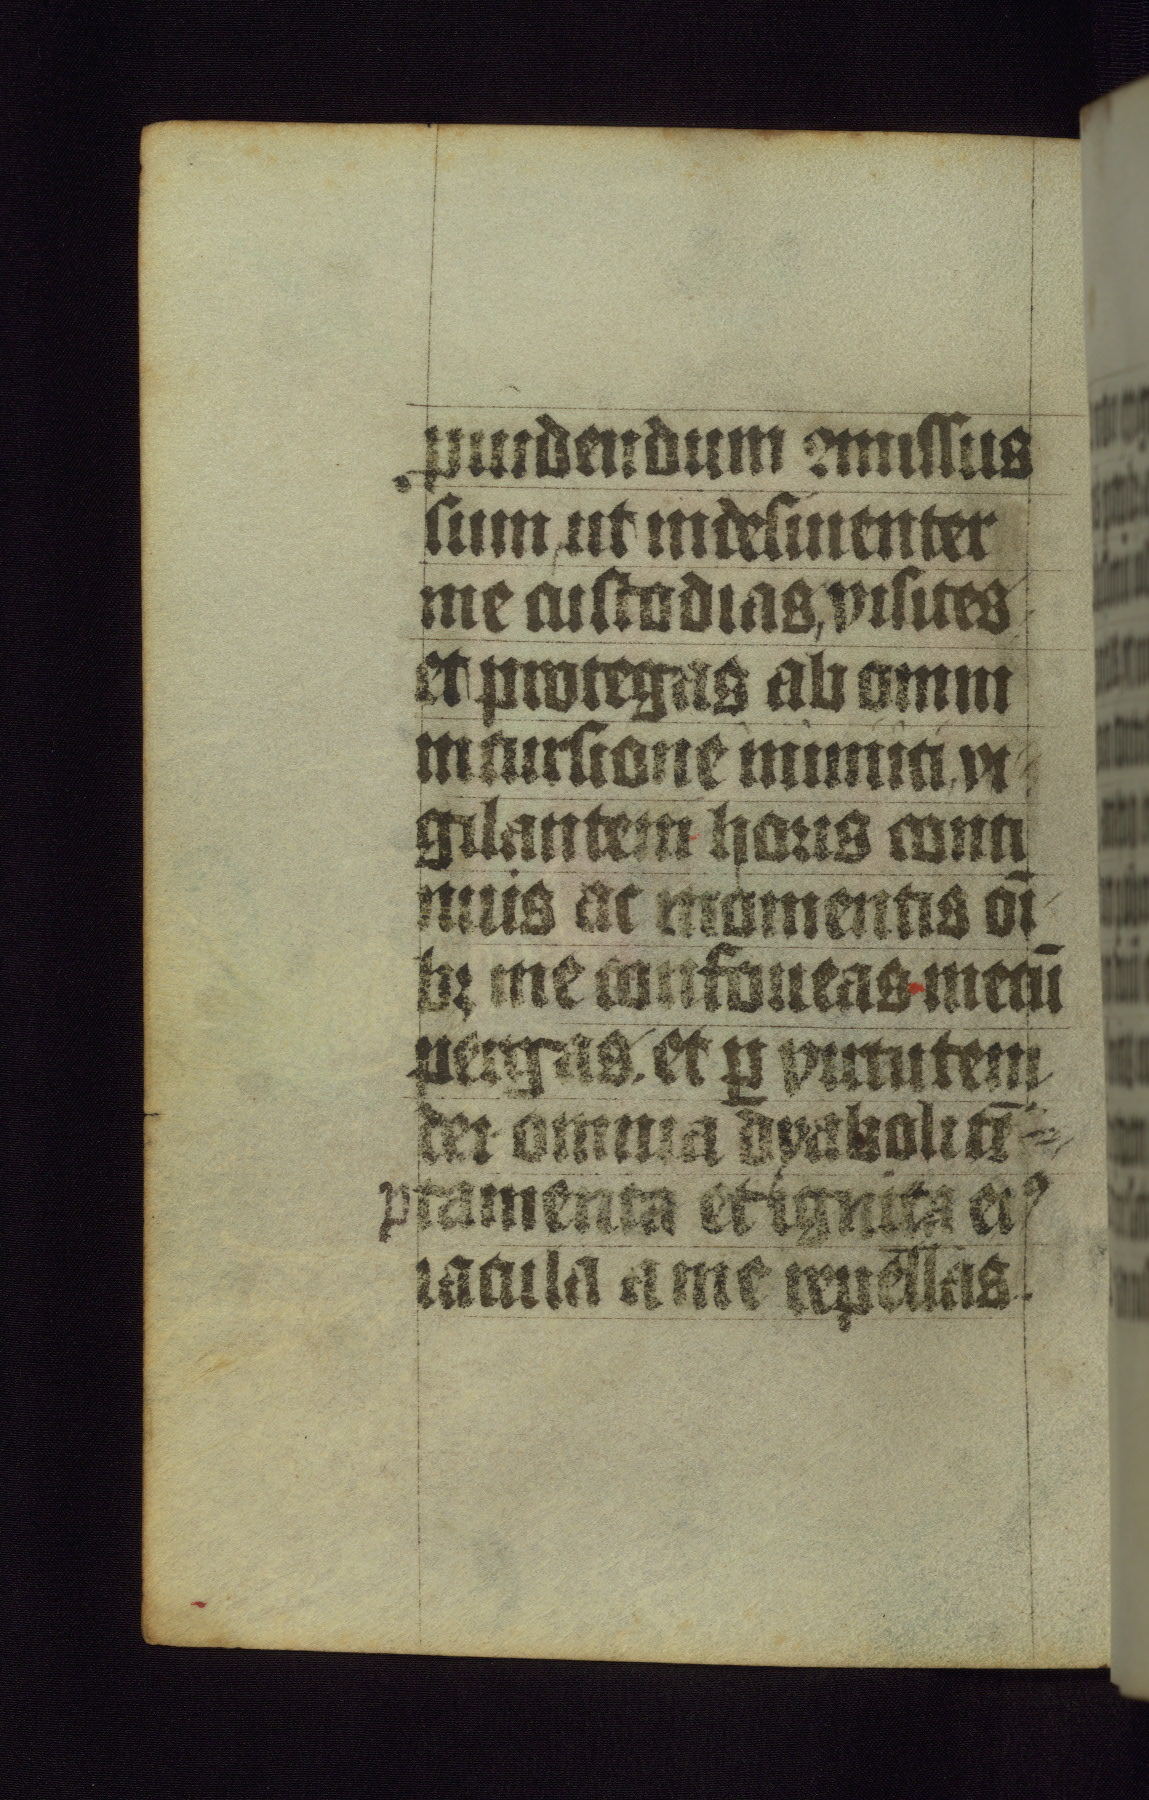 puidendum ꝯmissus
sum, ut indesinenter
me custodias, visites
et protegas ab omni
incursione inimici, vi
gilantem horis conti
nuis ac momentis oī
bꝫ me confoueas mecū
pergas. et ꝑ virtutem
dei omnia dyaboli tē
ptamenta et ignita eiꝰ
iacula a me repellas.